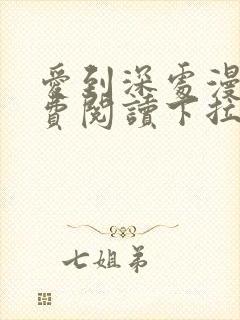 愛到深處漫
費閱讀下拉
七姐弟